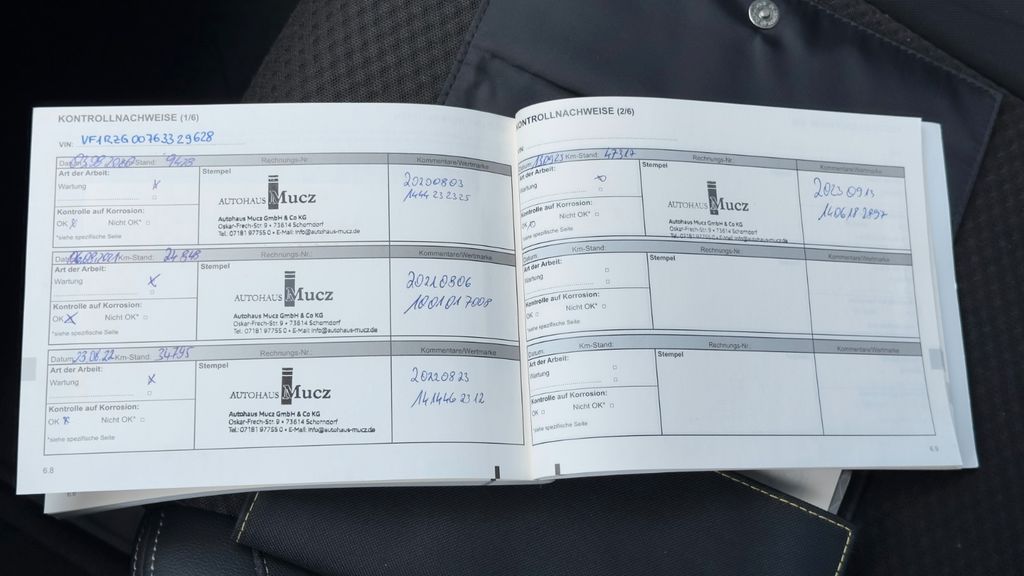 KONTROLLNACHWEISE (1/6)
VIN: VF1RZG00763329628
Datum: 03.08.2020 Km-Stand: 9428 Rechnungs-Nr.: Kommentare/Wertmarke
Art der Arbeit:
Wartung x
Kontrolle auf Korrosion:
OK x Nicht OK*
*siehe spezifische Seite
Stempel
AUTOHAUS Mucz
Autohaus Mucz GmbH & Co KG
Oskar-Frech-Str. 9 • 73614 Schorndorf
Tel.: 07181 97755 0 • E-Mail: info@autohaus-mucz.de
20200803
1444232325
Datum: 06.08.2021 Km-Stand: 24848 Rechnungs-Nr.: Kommentare/Wertmarke
Art der Arbeit:
Wartung x
Kontrolle auf Korrosion:
OK x Nicht OK*
*siehe spezifische Seite
Stempel
AUTOHAUS Mucz
Autohaus Mucz GmbH & Co KG
Oskar-Frech-Str. 9 • 73614 Schorndorf
Tel.: 07181 97755 0 • E-Mail: info@autohaus-mucz.de
20210806
1001017008
Datum: 23.08.22 Km-Stand: 34795 Rechnungs-Nr.: Kommentare/Wertmarke
Art der Arbeit:
Wartung x
Kontrolle auf Korrosion:
OK x Nicht OK*
*siehe spezifische Seite
Stempel
AUTOHAUS Mucz
Autohaus Mucz GmbH & Co KG
Oskar-Frech-Str. 9 • 73614 Schorndorf
Tel.: 07181 97755 0 • E-Mail: info@autohaus-mucz.de
20220823
1414462312
6.8
KONTROLLNACHWEISE (2/6)
VIN:
Datum: 13.09.23 Km-Stand: 47317 Rechnungs-Nr.: Kommentare/Wertmarke
Art der Arbeit:
Wartung
Kontrolle auf Korrosion:
OK Nicht OK*
*siehe spezifische Seite
Stempel
AUTOHAUS Mucz
Autohaus Mucz GmbH & Co KG
Oskar-Frech-Str. 9 • 73614 Schorndorf
Tel.: 07181 97755 0 • E-Mail: info@autohaus-mucz.de
20230913
1406182897
Datum: Km-Stand: Rechnungs-Nr.: Kommentare/Wertmarke
Art der Arbeit:
Wartung
Kontrolle auf Korrosion:
OK Nicht OK*
*siehe spezifische Seite
Stempel
Datum: Km-Stand: Rechnungs-Nr.: Kommentare/Wertmarke
Art der Arbeit:
Wartung
Kontrolle auf Korrosion:
OK Nicht OK*
*siehe spezifische Seite
Stempel
6.9